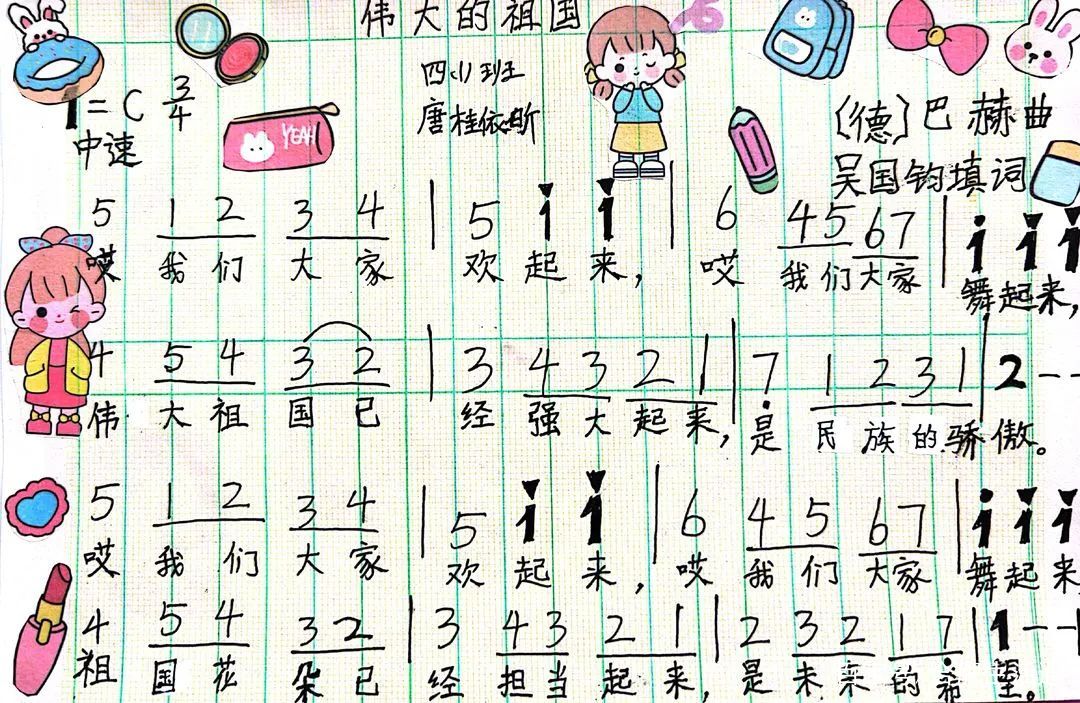 伟大的祖国
1=C 3/4
四(1)班
中速
唐桂依
(德)巴赫曲
吴国钧填词
YEAH
5 1 2 3 4 | 5 1 1 | 6 4 5 6 7 | 1 1 1
哎 我们 大家 欢起来, 哎 我们大家 舞起来,
4 5 4 3 2 | 3 4 3 2 1 | 7 1 2 3 1 | 2 - -
伟 大祖 国已 经 强大 起来, 是 民族的骄傲。
5 1 2 3 4 | 5 1 1 | 6 4 5 6 7 | 1 1 1
哎 我们 大家 欢起来, 哎 我们 大家 舞起来
4 5 4 3 2 | 3 4 3 2 1 | 2 3 2 1 7 | 1 - -
祖 国花 朵已 经 担当 起来, 是 未来 的希望。